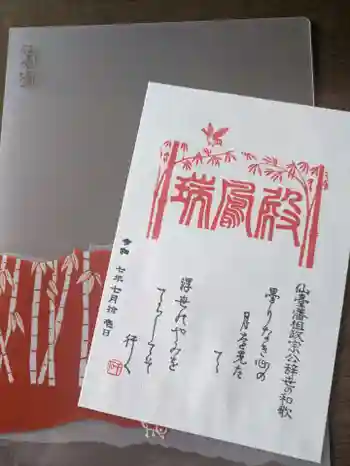 瑞鳳殿
仙臺藩祖政宗公辞世の和歌
曇りなき心の
月を先だ
てて
浮世のやみを
てらしてそ
行く
令和 七年七月拾壱日